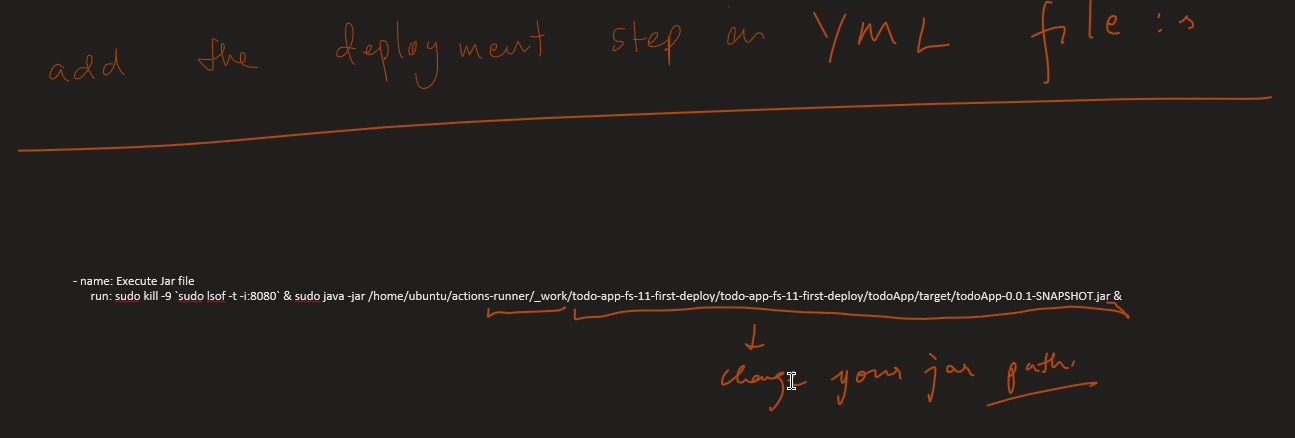 add the deployment step in YML file :s
- name: Execute Jar file
run: sudo kill -9 `sudo lsof -t -i:8080` & sudo java -jar /home/ubuntu/actions-runner/_work/todo-app-fs-11-first-deploy/todo-app-fs-11-first-deploy/todoApp/target/todoApp-0.0.1-SNAPSHOT.jar &
change your jar path.